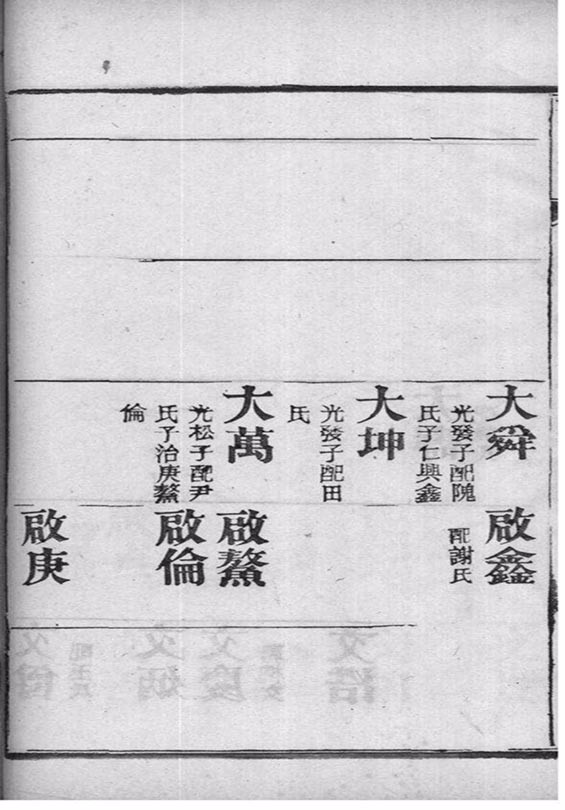 大舜
光發子配隗
氏子仁興鑫
大坤
光發子配田
氏
大萬
光松子配尹
氏子治庚鰲
倫
啟鑫
配謝氏
啟鰲
啟倫
啟庚